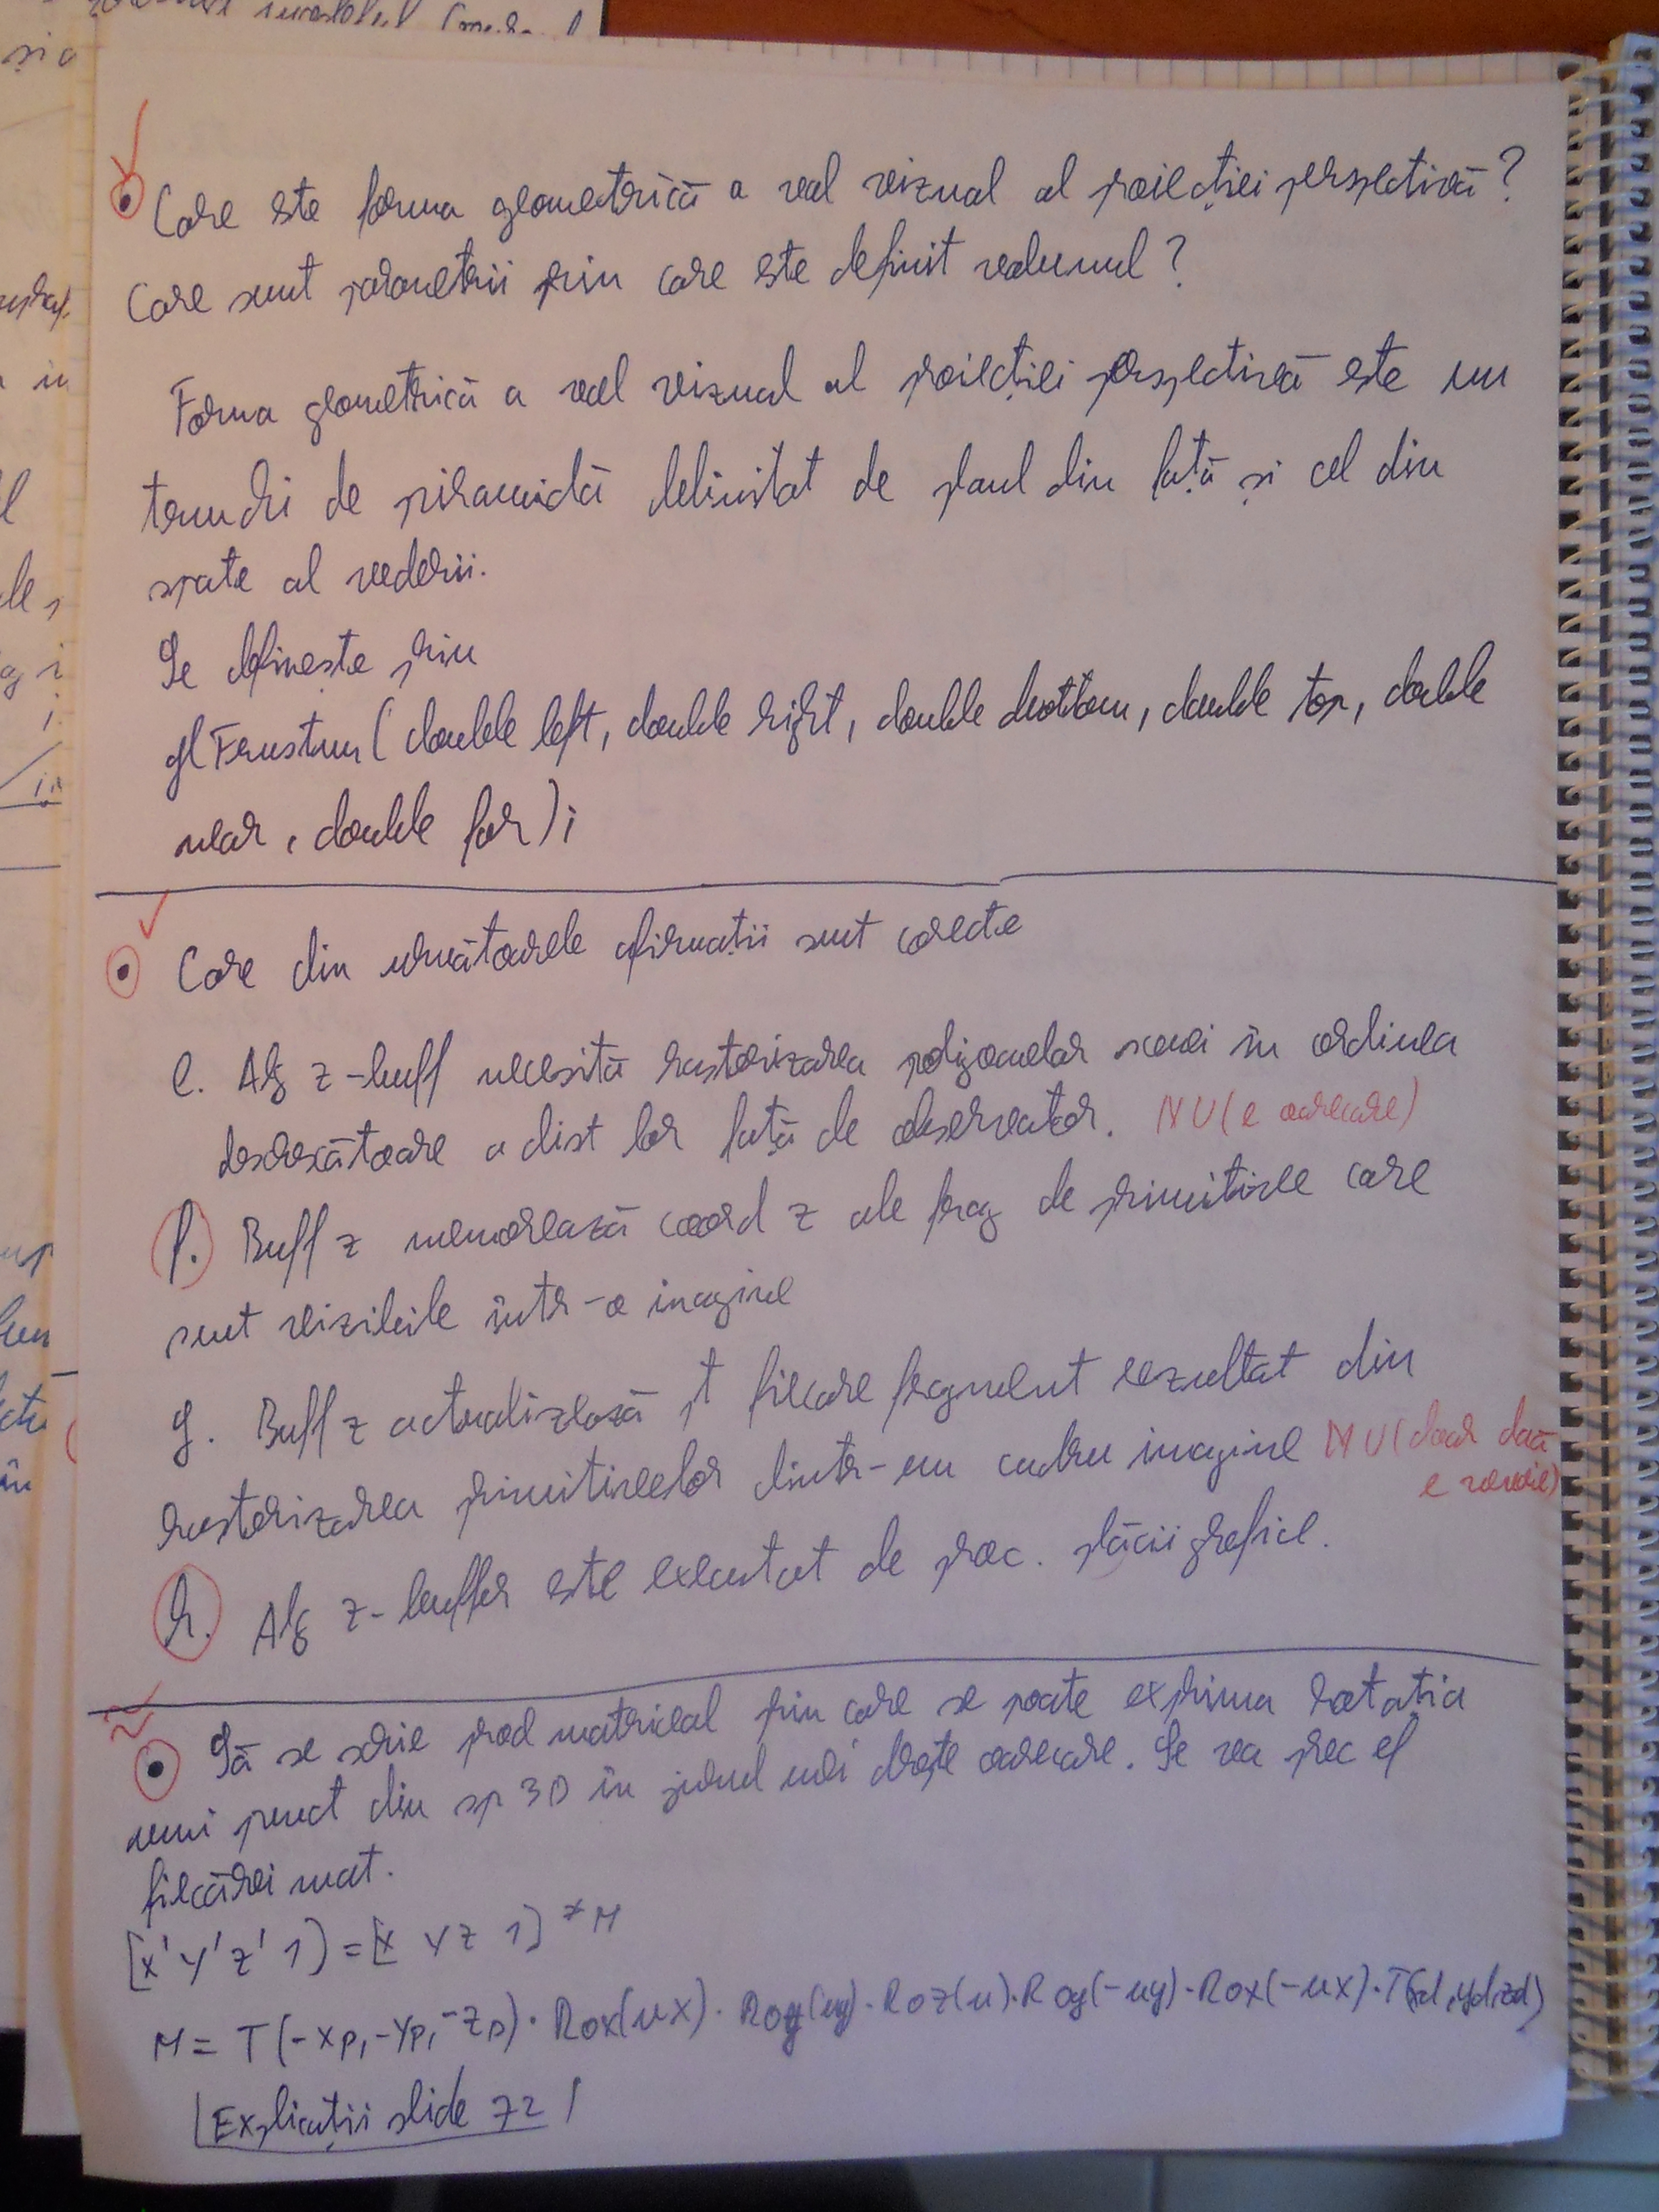 Care este forma geometrică a vol vizual al proiecției perspectivă?
Care sunt parametrii prin care este definit volumul?
Forma geometrică a vol vizual al proiecției perspectivă este un
trunchi de piramidă delimitat de planul din față și cel din
spate al vederii.
Se definește prin
glFrustum(double left, double right, double bottom, double top, double
near, double far);
Care din următoarele afirmații sunt corecte
e. Alg z-buff necesită rasterizarea poligoanelor scenei în ordinea
descrescătoare a dist lor față de observator. NU(e oarecare)
f. Buff z memorează coord z ale frag de primitive care
sunt vizibile într-o imagine
g. Buff z actualizează pt fiecare fragment rezultat din
rasterizarea primitivelor dintr-un cadru imagine NU(doar dacă
e nevoie)
h. Alg z-buffer este executat de proc. plăcii grafice.
Să se scrie prod matriceal prin care se poate exprima rotația
unui punct din sp 3D în jurul unei drepte oarecare. Se va prec ef
fiecărei mat.
[x' y' z' 1] = [x y z 1] * M
M = T(-xp, -yp, -zp) · Rox(ux) · Roy(uy) · Roz(u) · Roy(-uy) · Rox(-ux) · T(xd, yd, zd)
Explicații slide 72